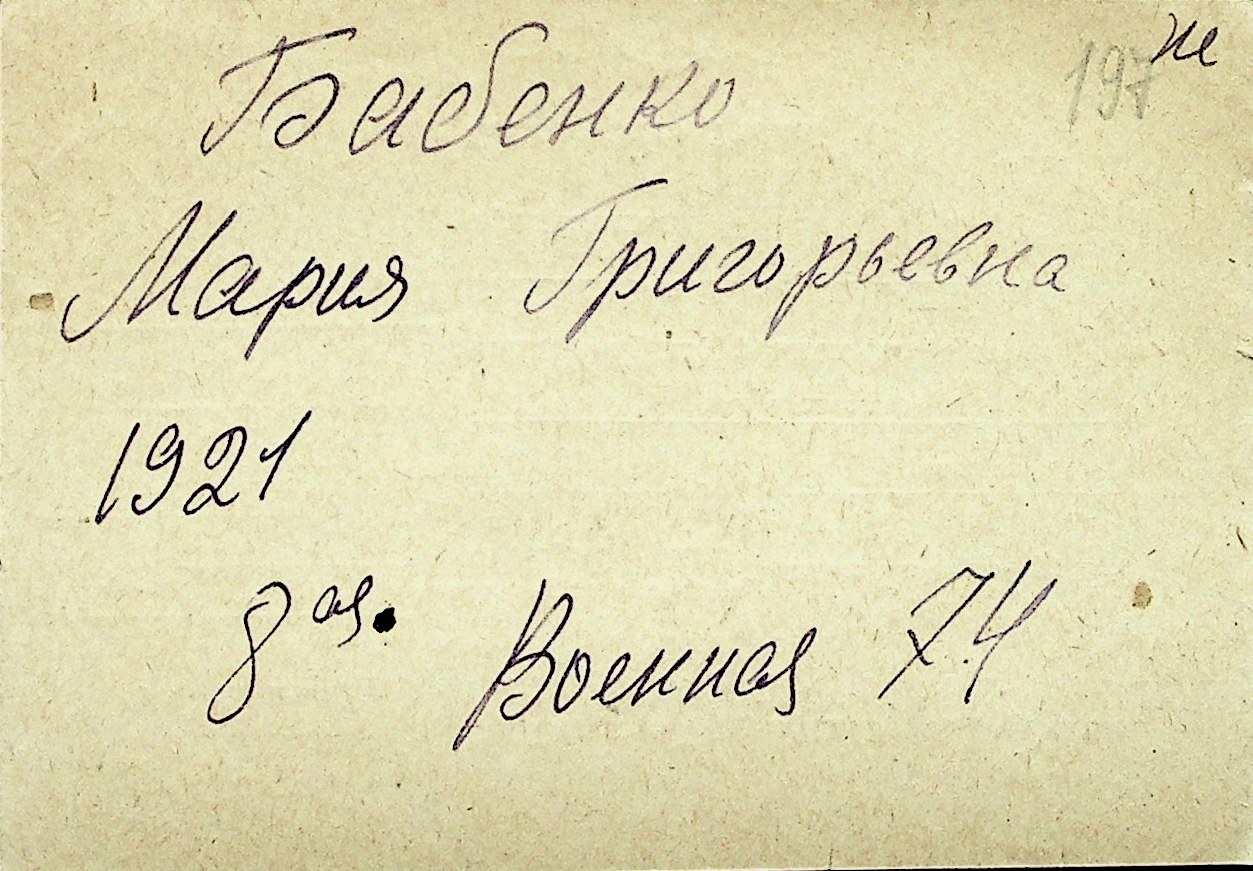 197
Бабенко
Мария Григорьевна
1921
8ая. Военная 74